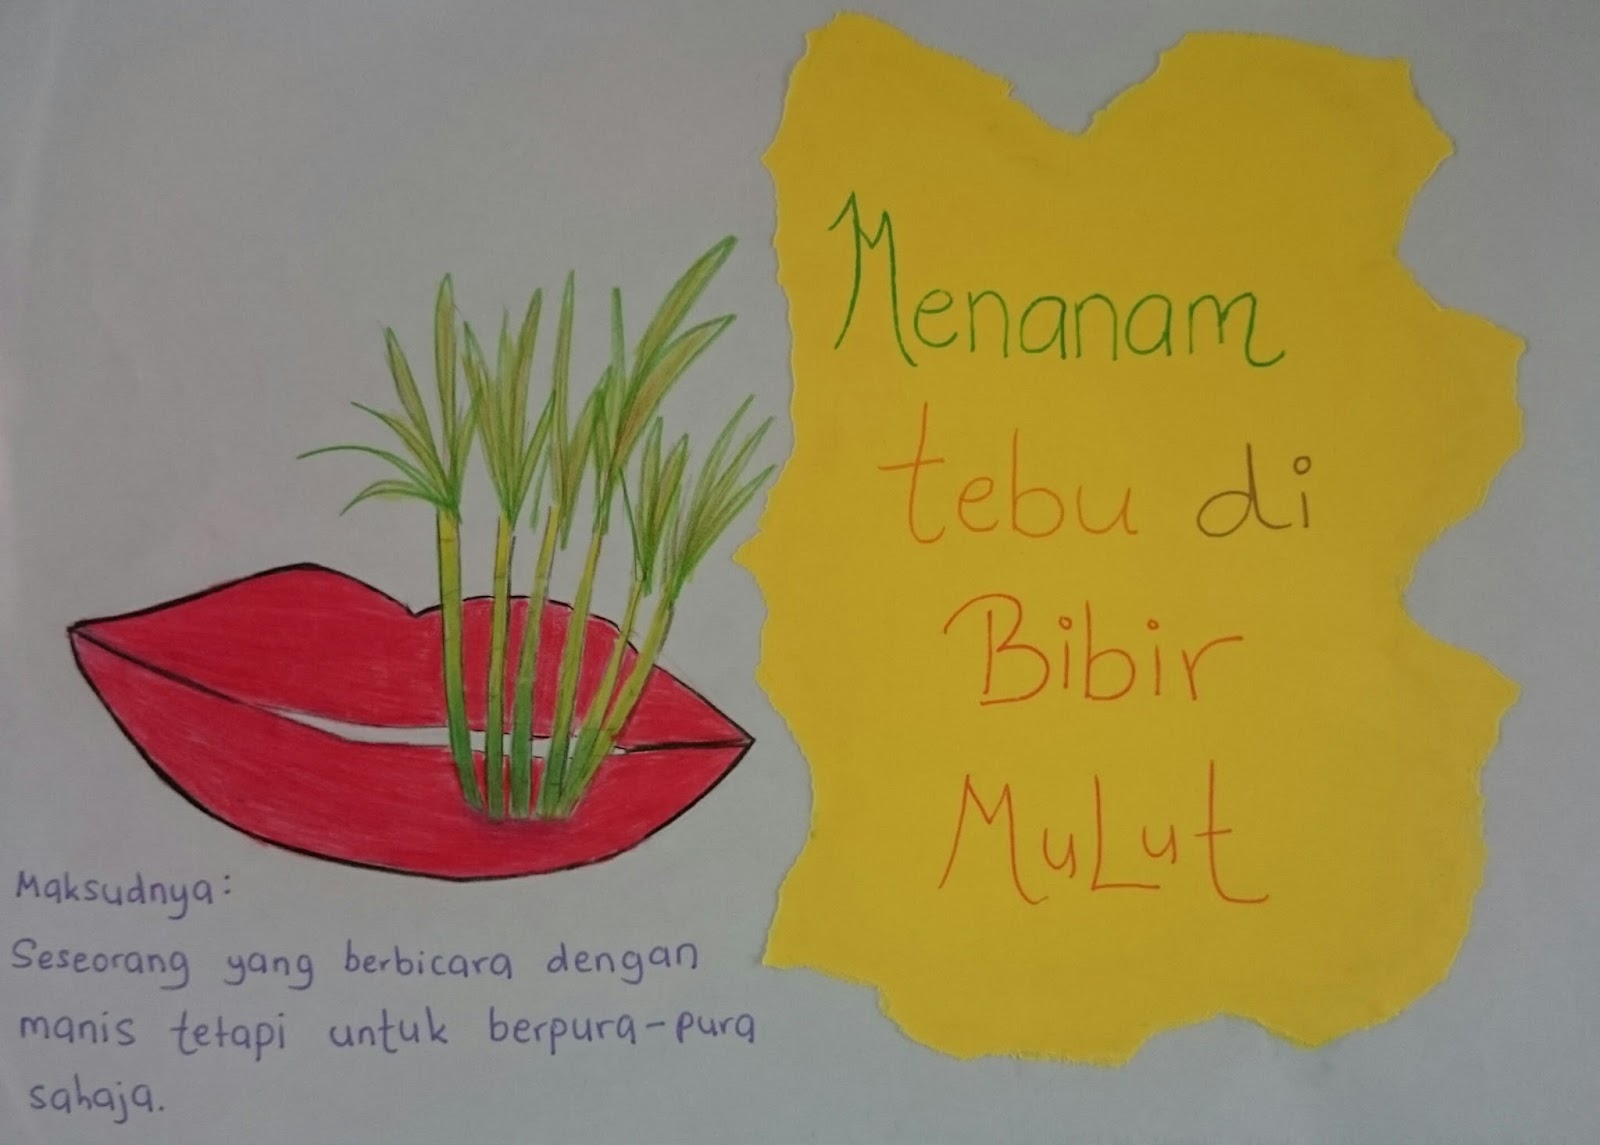 Menanam
tebu di
Bibir
MuLut
Maksudnya:
Seseorang yang berbicara dengan
manis tetapi untuk berpura-pura
sahaja.